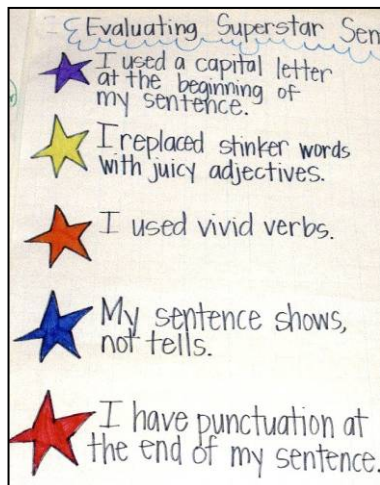 Evaluating Superstar Sen
I used a capital letter
at the beginning of
my sentence.
I replaced stinker words
with juicy adjectives.
I used vivid verbs.
My sentence shows,
not tells.
I have punctuation at
the end of my sentence.